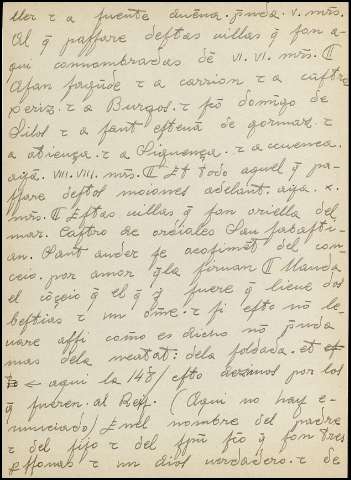 ller τ a fuente dueña. p̃nda. v. mr̃s.
Al q̃ passare destas villas q̃ son a-
qui connombradas dẽ VI. VI. mr̃s. ℂ
A san fagũde τ a carrion τ a castre
xeriz. τ a Burgos. τ sc̃o domĩgo de
Silos τ a sant esteuã de gormaz. τ
a atiença. τ a Siguença. τ a cuenca.
ayã. VIII. VIII. mr̃s. ℂ Et todo aquel q̃ pa-
ssare destos moiones adelant. aya. x.
mr̃s. ℂ Estas villas q̃ son oriella del
mar. Castro de ordiales San sabasti-
an. Sant ander se acofimẽt del con
ceio. por amor q̃la siruan ℂ Manda
el cõçeio q̃ el q̃ q̃ fuere q̃ lieue dos
bestias τ un om̃e. τ si esto nõ le-
uare assi como es dicho nõ p̃nda
mas dela meatat. dela soldada. et
← aqui la 148/ esto dezimos por los
q̃ fuerẽn. al Rey. (Aqui no hay e-
nunciado) Enel nombre del padre
τ del fijo τ del sp̃u sc̃o q̃ son tres
p̃sonas τ un dios uerdadero. τ de